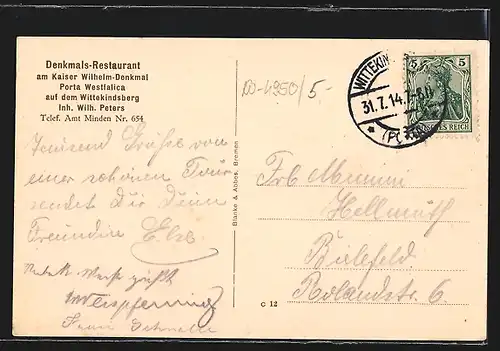 Denkmals-Restaurant
am Kaiser Wilhelm-Denkmal
Porta Westfalica
auf dem Wittekindsberg
Inh. Wilh. Peters
Telef. Amt Minden Nr. 654
Tausend Grüße von
einer schönen Tour
sendet Dir Deine
Freundin Else
Blanke & Abbes, Bremen
C 12
4950/5-
WITTEKIN
31.7.14.7-8.
5 5
ES REICH
Frl. Mimmi
Hellmuth
Bielefeld
Rolandstr. 6.